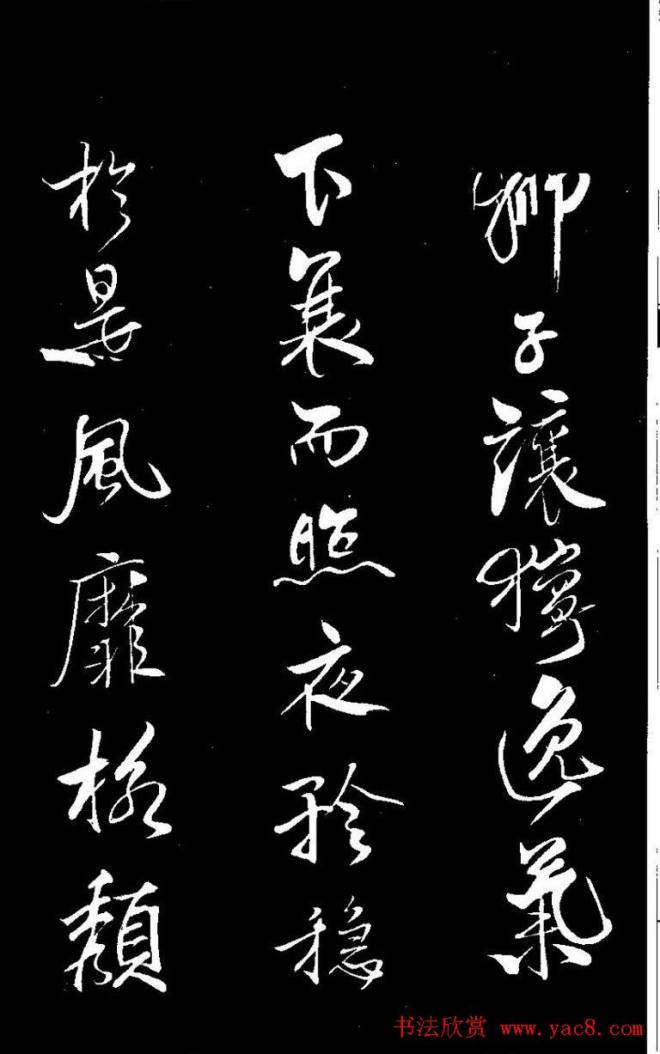 獅子讓獰逸氣
下襄而照夜矜穩
於是風靡格頹
书法欣赏 www.yac8.com